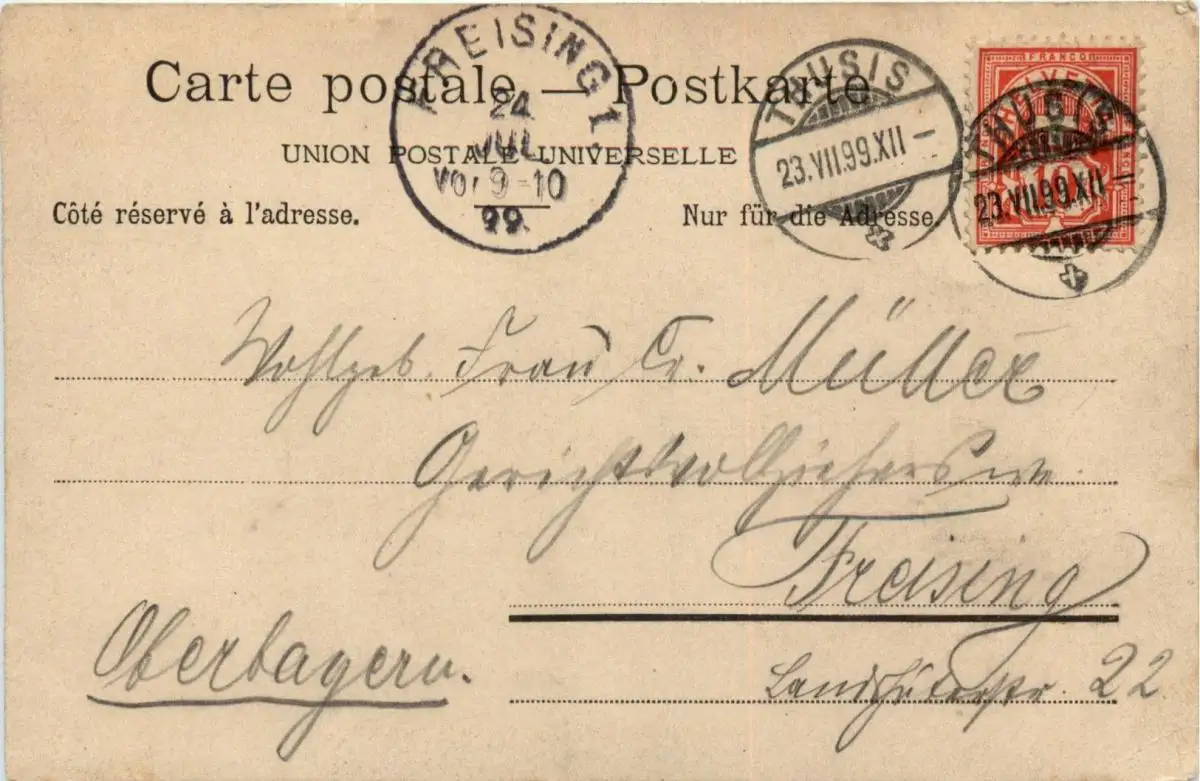 Carte postale — Postkarte
UNION POSTALE UNIVERSELLE
Côté réservé à l'adresse.
Nur für die Adresse.
FREISING 1.
24
JUL
Vor 9-10
99.
THUSIS
23.VII.99.XII –
FRANCO
HELVETIA
10
THUSIS
23.VII.99.XII –
Wohlgeb. Frau Cr. Müller
Gerichtsvollzieherswe.
Freising
Oberbayern.
Landshuterstr. 22